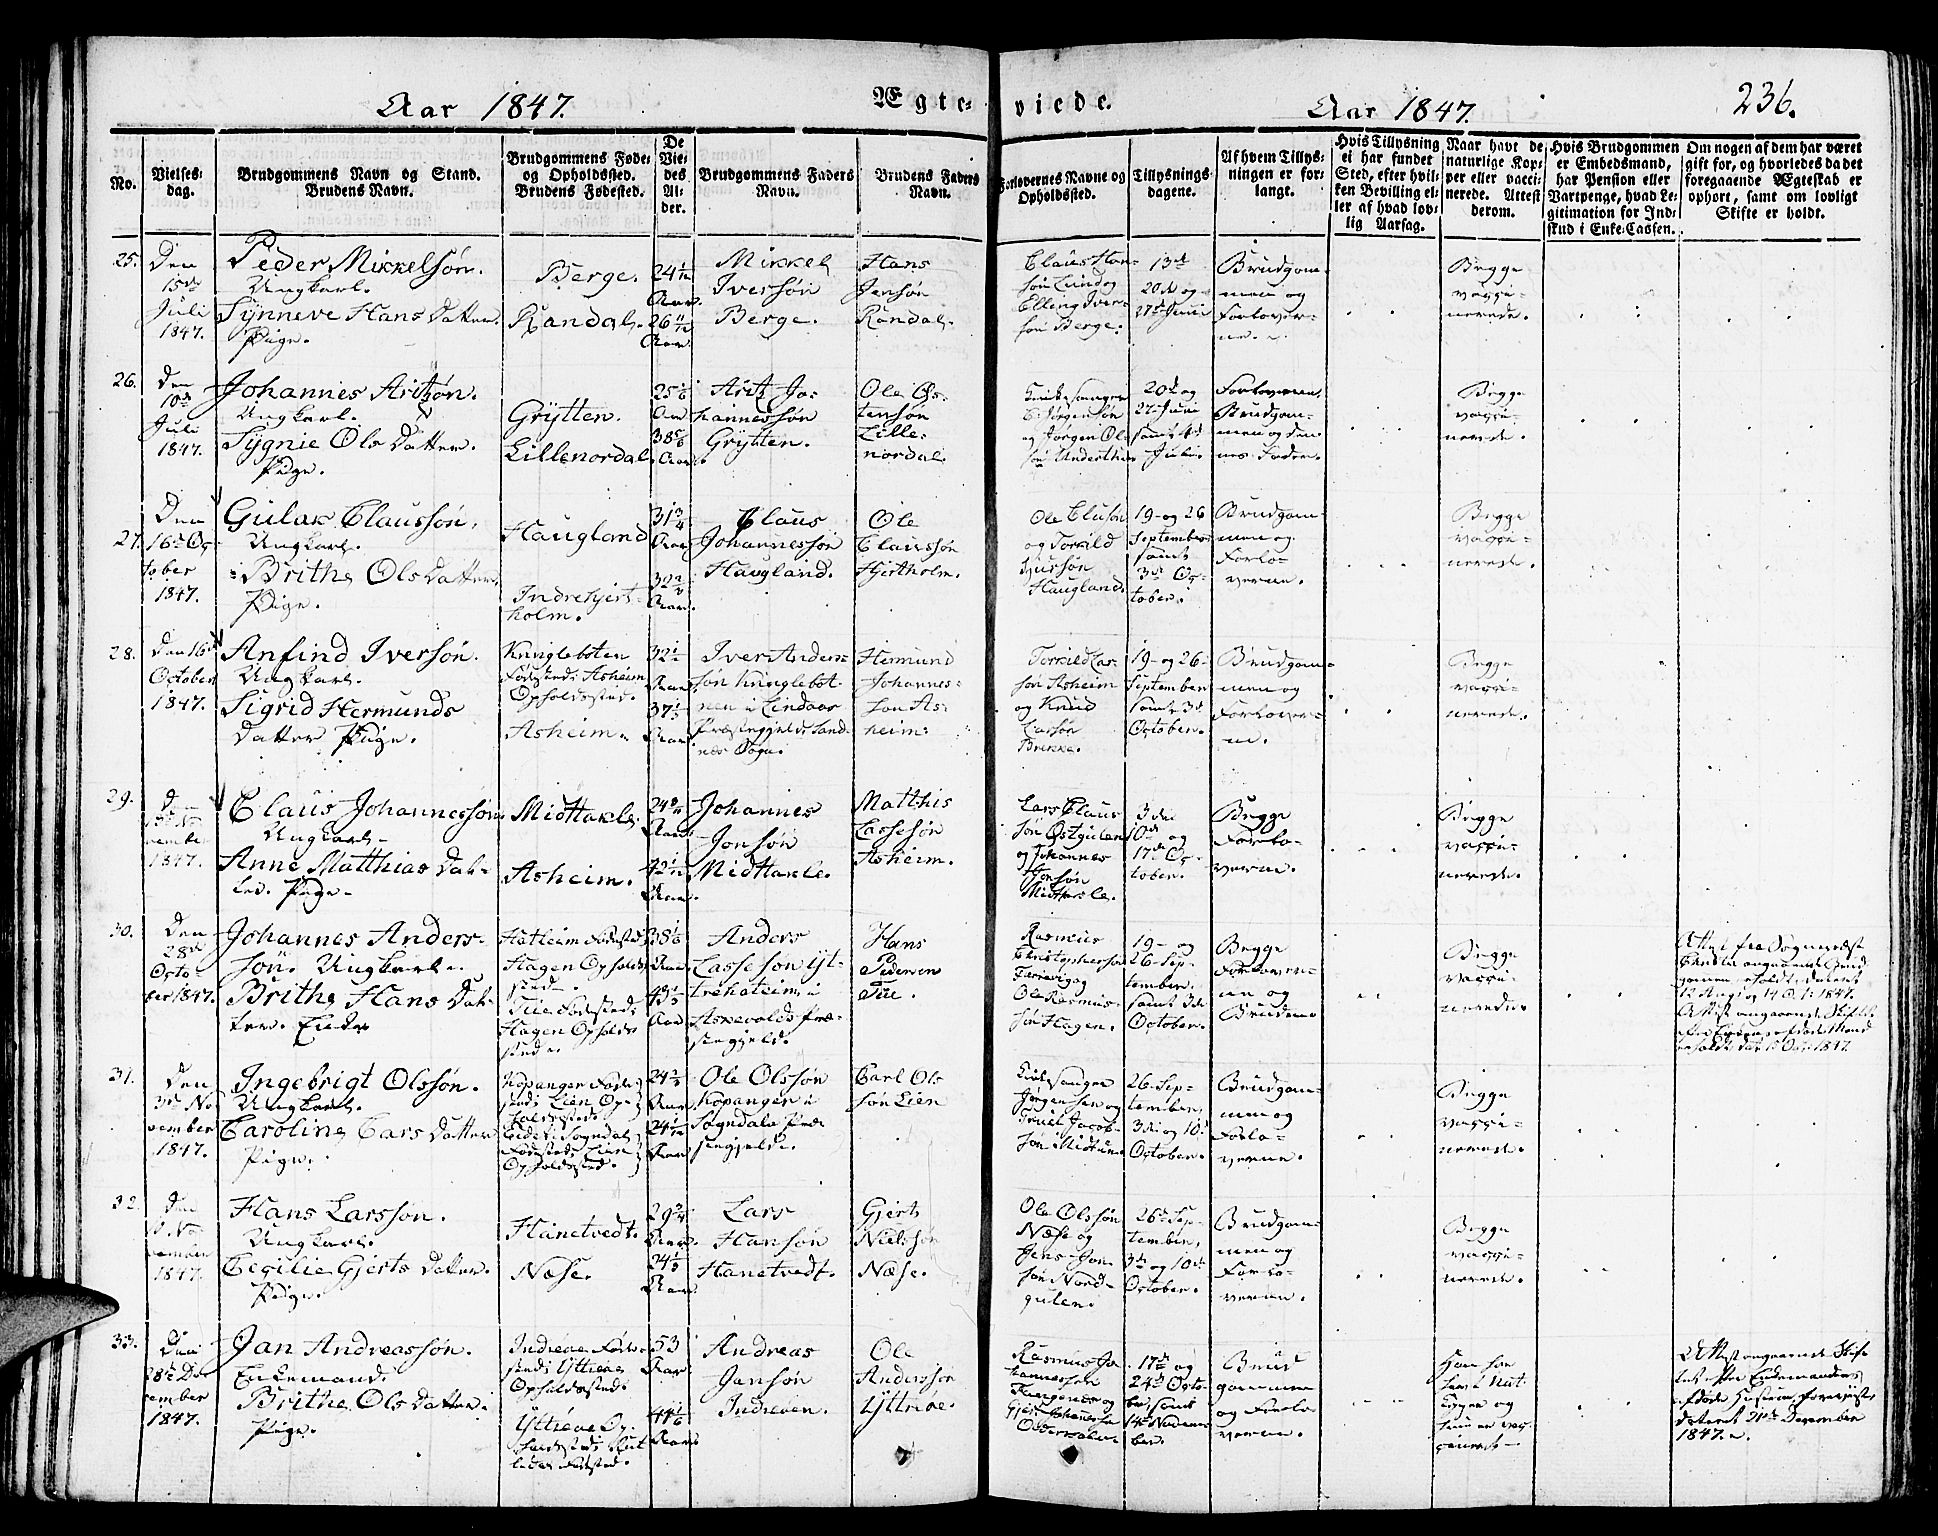 Aar 1847.
Ægte-
viede.
Aar 1847.
236.
No.
Vielses-
dag.
Brudgommens Navn og Stand.
Brudens Navn.
Brudgommens Føde-
og Opholdssted.
Brudens Fødested.
De
Vie-
des
Al-
der.
Brudgommens Faders
Navn.
Brudens Faders
Navn.
Forlovernes Navne og
Opholdssted.
Tillysnings-
dagene.
Af hvem Tillys-
ningen er for-
langt.
Hvis Tillysning
ei har fundet
Sted, efter hvil-
ken Bevilling el-
ler af hvad lov-
lig Aarsag.
Naar havt de
naturlige Kop-
per eller vacci-
nerede. Attest
derom.
Hvis Brudgommen
er Embedsmand,
har Pension eller
Vartpenge, hvad Le-
gitimation for Ind-
skud i Enke-Cassen.
Om nogen af dem har været
gift før, og hvorledes da det
foregaaende Ægteskab er
ophørt, samt om lovligt
Skifte er holdt.
25.
Den
15de
Juli
1847.
Peder Mikkelsøn.
Ungkarl.
Synneve Hans Datter.
Pige.
Berge.
Randal.
24 1/12
Aar.
26 11/12
Aar
Mikkel
Iversøn
Berge.
Hans
Jensøn
Randal.
Claus Han-
søn Lund og
Elling Iver-
søn Berge.
13de
20de og
27de Juni
Brudgom-
men og
Forlover-
ne.
Begge
vacci-
nerede.
26.
Den
10de
Juli
1847.
Johannes Aritzøn.
Ungkarl.
Sygnie Ols Datter.
Pige.
Grytten.
Lillenordal.
25 1/6
Aar
38 5/6
Aar
Aritz Jo-
hannessøn
Grytten.
Ole Øs-
tensøn
Lille-
nordal.
Kirkesanger
Jørgensøn
og Jørgen Ol-
søn
20de og
27 Juni
samt 4de
Juli.
Forloverne,
Brudgom-
men og den-
nes Fader.
Begge
vacci-
nerede.
27.
Den
16de Oc-
tober
1847.
Gulak Claussøn.
Ungkarl.
Brithe Ols Datter.
Pige.
Haugland
Indrehjert-
holm.
31 3/4
Aar
32
Aar.
Claus
Johannessøn
Haugland.
Ole
Claussøn
Hjertholm.
Ole Clusøn
og Torkild
Haugland.
19- og 26
September
samt
3de Oc-
tober.
Brudgom-
men og
Forlo-
verne.
Begge
vacci-
nerede.
28.
Den 16de
October
1847.
Anfind Iversøn.
Ungkarl.
Sigrid Hermunds
Datter Pige.
Kringleboten
Fødested, Asheim
Opholdssted.
Asheim.
32 1/2
Aar
37 1/3
Aar
Iver Anders-
søn Kringlebot-
nen i Lindaas
Præstegjeld, Sand-
næs Sogn.
Hermund
Johannes-
søn As-
heim.
Torkild Las-
søn Asheim
og Knud
Larssøn
Brekke.
19- og 26-
September
samt 3de
October.
Brudgom-
men og
Forlover-
ne.
Begge
vacci-
nerede.
29.
vember
1847.
Claus Johannessøn
Ungkarl.
Anne Matthias Dat-
ter. Pige.
Midttakle.
Asheim.
24
Aar.
42 1/12
Aar.
Johannes
Jonsøn
Midttakle.
Matthis
Lassesøn
Asheim.
Lars Claus
søn Østgulen
og Johannes
Jonsøn
Midttakle.
3de
10de og
17de Oc-
tober.
Begge
Forlo-
verne.
Begge
vacci-
nerede.
30.
Den
28de
Octo-
ber 1847.
Johannes Anders-
søn. Ungkarl.
Brithe Hans Dat-
ter. Enke
Hatleim Fødested
Hagen Opholds-
sted.
Tue Fødested
Hagen Opholds
sted.
38 1/6
Aar
43 1/3
Aar
Anders
Lassesøn Yt-
trehateim, i
Askevolds Præ-
stegjeld.
Hans
Pedersen
Tue.
Rasmus
Christophersøn
og
Ole Rasmus-
søn Hagen.
19- og
26 Sep-
tember.
samt 3de
October.
Begge
Forlover-
ne og
Bruden
Begge
vacci-
nerede.
Attest fra Sognepræst
12 Aug. og 14 Oct. 1847.
Attest angaaende Skifte
31.
Den
3de No-
vember
1847.
Ingebrigt Olssøn.
Ungkarl.
Caroline Cars Datter
Pige.
Kopanger Føde-
sted, Lien Op-
holdssted.
Eide i Sogndal
Fødested, Lien
Opholdssted.
24 1/3
Aar
24 1/12
Aar
Ole Olssøn
Kopanger i
Sogndals Præ-
stegjeld.
Carl Ols
søn Lien
Kirkesanger
Jørgensen og
Truls Jacob-
søn Midtun.
26 Sep-
tember,
3de og 10de
October.
Brudgom-
men og
Forlo-
verne.
Begge
vacci-
nerede.
32.
Den
vember
1847.
Hans Larssøn.
Ungkarl.
Cecilie Gjerts Datter.
Pige.
Hanetvedt.
Næse.
29 3/4
Aar.
24 1/3
Aar
Lars
Hansøn
Hanetvedt.
Gjert
Nielssøn
Næse.
Ole Olssøn
Næse og
Jens Jon-
søn Nord-
gulen.
26de Sep-
tember,
3de og 10de
October.
Brudgom-
men og
Forlo-
verne.
Begge
vacci-
nerede.
33.
Den
28de De-
cember
1847.
Jan Andreassøn.
Enkemand.
Brithe Ols Datter.
Pige.
Indreøe Føde-
sted, Yttreøe
Opholdssted.
Yttreøe Op-
holdssted,
Fødested.
53
Aar.
44 1/6
Aar
Andreas
Jansøn
Indreøen.
Ole
Andersson
Yttreøe.
Rasmus Jo-
hannessøn
og
Gjert Johannessøn
17de og
24de Octo-
ber, samt
14de Novem-
ber.
Brud
gommen
og Forlo-
verne.
Han har
havt Nat.
Kopper og
hun er vac-
cineret.
Attest angaaende Skif-
tet efter Enkemandens
afdøde Hustrue, foreviist
dateret 21de December
1847.